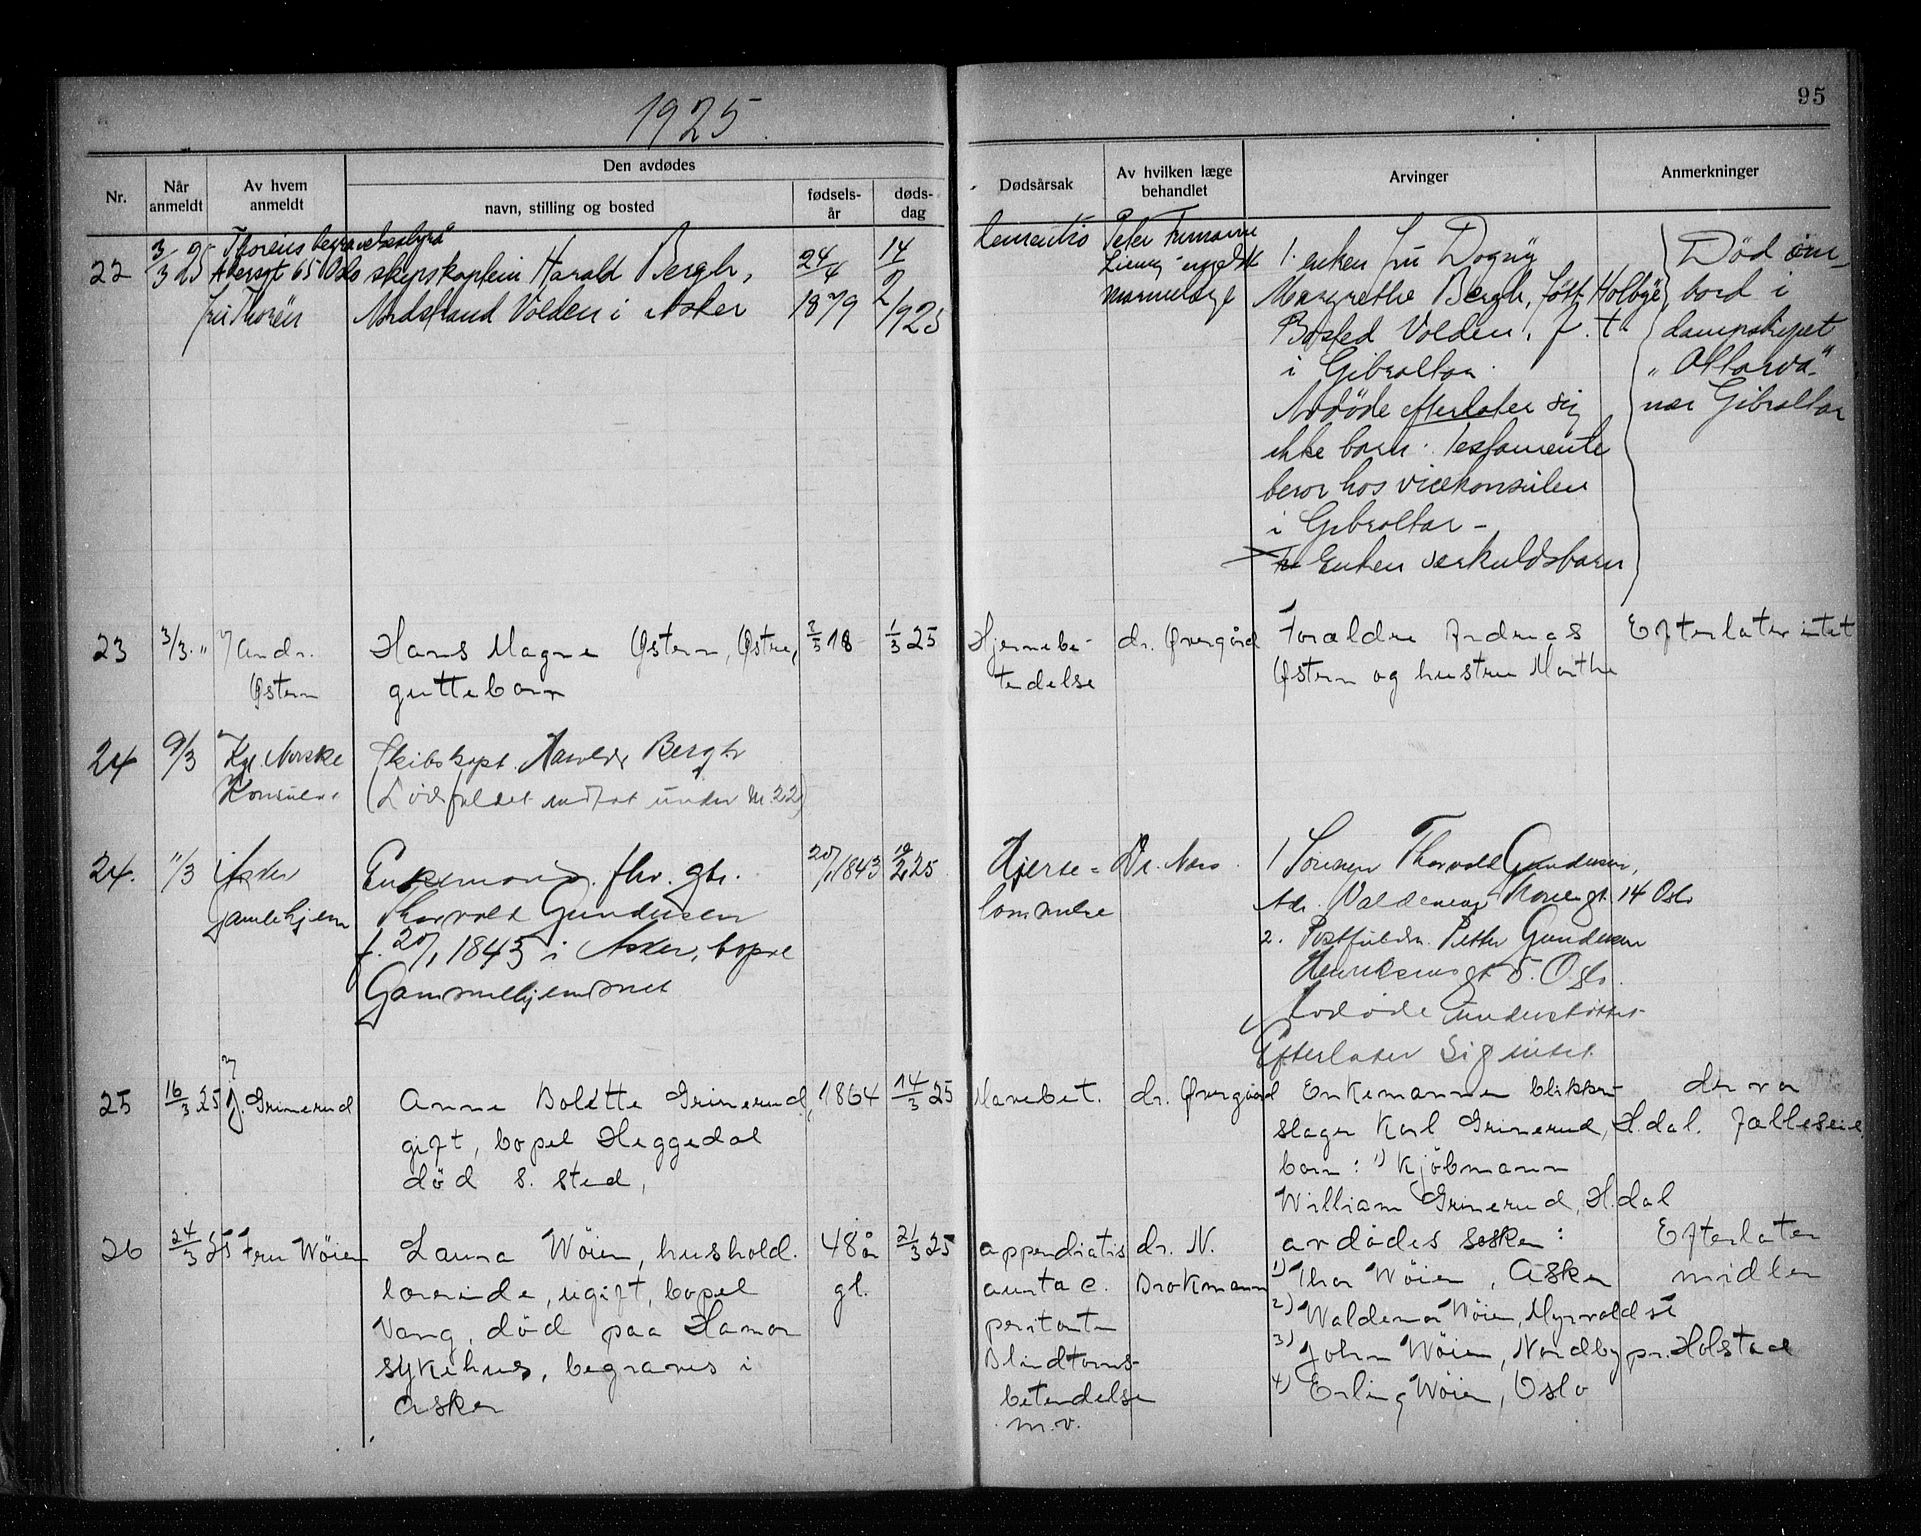 1925
95
Nr.
Når anmeldt
Av hvem anmeldt
Den avdødes
navn, stilling og bosted
fødselsår
dødsdag
Dødsårsak
Av hvilken læge behandlet
Arvinger
Anmerkninger
22
3/3 25
Thoréns begravelsesbyrå
Akersgt 65 Oslo
fru Thorén
skipskaptein Harald Bergh,
Nordstrand Volden i Asker
24/4
1879
14/2
1925
Peter
1. enken fru Dagny
Margrethe Bergh, født Holbye
Bosted Volden, f. t.
i Gibraltar.
Avdøde efterlater sig
ikke barn. Testamente
beror hos vicekonsulen
i Gibraltar –
Enken særkuldsbarn
Død om
bord i
dampskipet
"Attarva"
nær Gibraltar
23
3/3 "
Andr.
Østern
Hans Magne Østern, Østre,
guttebarn
18
1/3 25
Hjernebe-
tendelse
dr. Øvergård
Forældre Andreas
Østern og hustru Marthe
Efterlater intet
24
9/3
Kgl. Norske
Konsulat
Skibskapt. Harald Bergh
(Dødsfaldet indført under nr. 22)
24.
11/3
Asker
Gamlehjem
Enkemand, fhv. gbr.
Thorvald Gundersen
f. 20/1 1843 i Asker, bopæl
Gammelhjemmet
20/1 1843
19/2 25
Hjerte-
lammelse
Dr. Ness
1 Sønnen Thorvald Gundersen,
Adr. Valdemar Thranesgt 14 Oslo
2. Postfuldm. Petter Gundersen
gt 5. Oslo.
Avdøde understøttet
Efterlater sig intet
25
16/3 25
J. Grinerud
Anne Bolette Grinerud,
gift, bopel Heggedal
død s. sted,
1864
14/3 25
Mavebet.
dr. Øvergård
Enkemannen blikken-
slager Karl Grinerud, H.dal.
barn: 1) Kjøbmann
William Grinerud, H.dal
der var
fælleseie
26
24/3 25
Fru Wøien
Laura Wøien, hushold.
lærerinde, ugift, bopel
Vang, død paa Hamar
sykehus, begraves i
Asker
48 år
gl.
21/3 25
appendiatis
c.
Blindtarms-
betendelse
m.v.
dr. N.
Brokmann
avdødes søsken:
1) Thor Wøien, Asker
2) Waldemar Wøien, Myrvold st
3) John Wøien, Nordby pr. Holstad
4) Erling Wøien, Oslo
Efterlater
midler